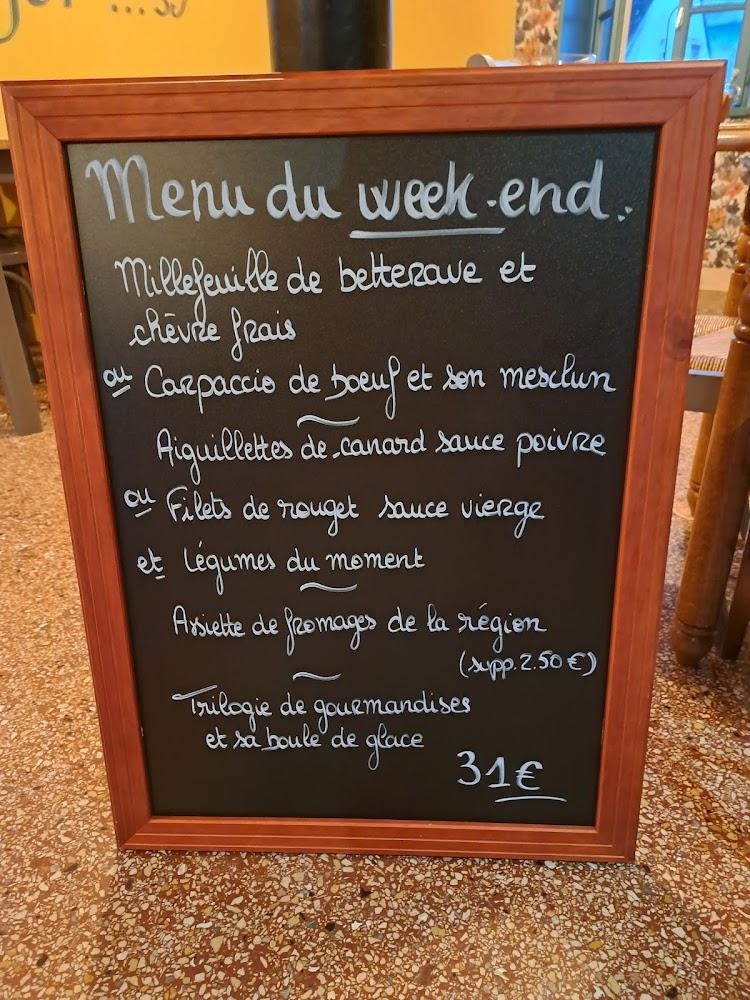 Menu du week-end..
Millefeuille de betterave et
chèvre frais
ou Carpaccio de boeuf et son mesclun
~
Aiguillettes de canard sauce poivre
ou Filets de rouget sauce vierge
et légumes du moment
~
Assiette de fromages de la région
(supp. 2.50€)
~
Trilogie de gourmandises
et sa boule de glace
31€